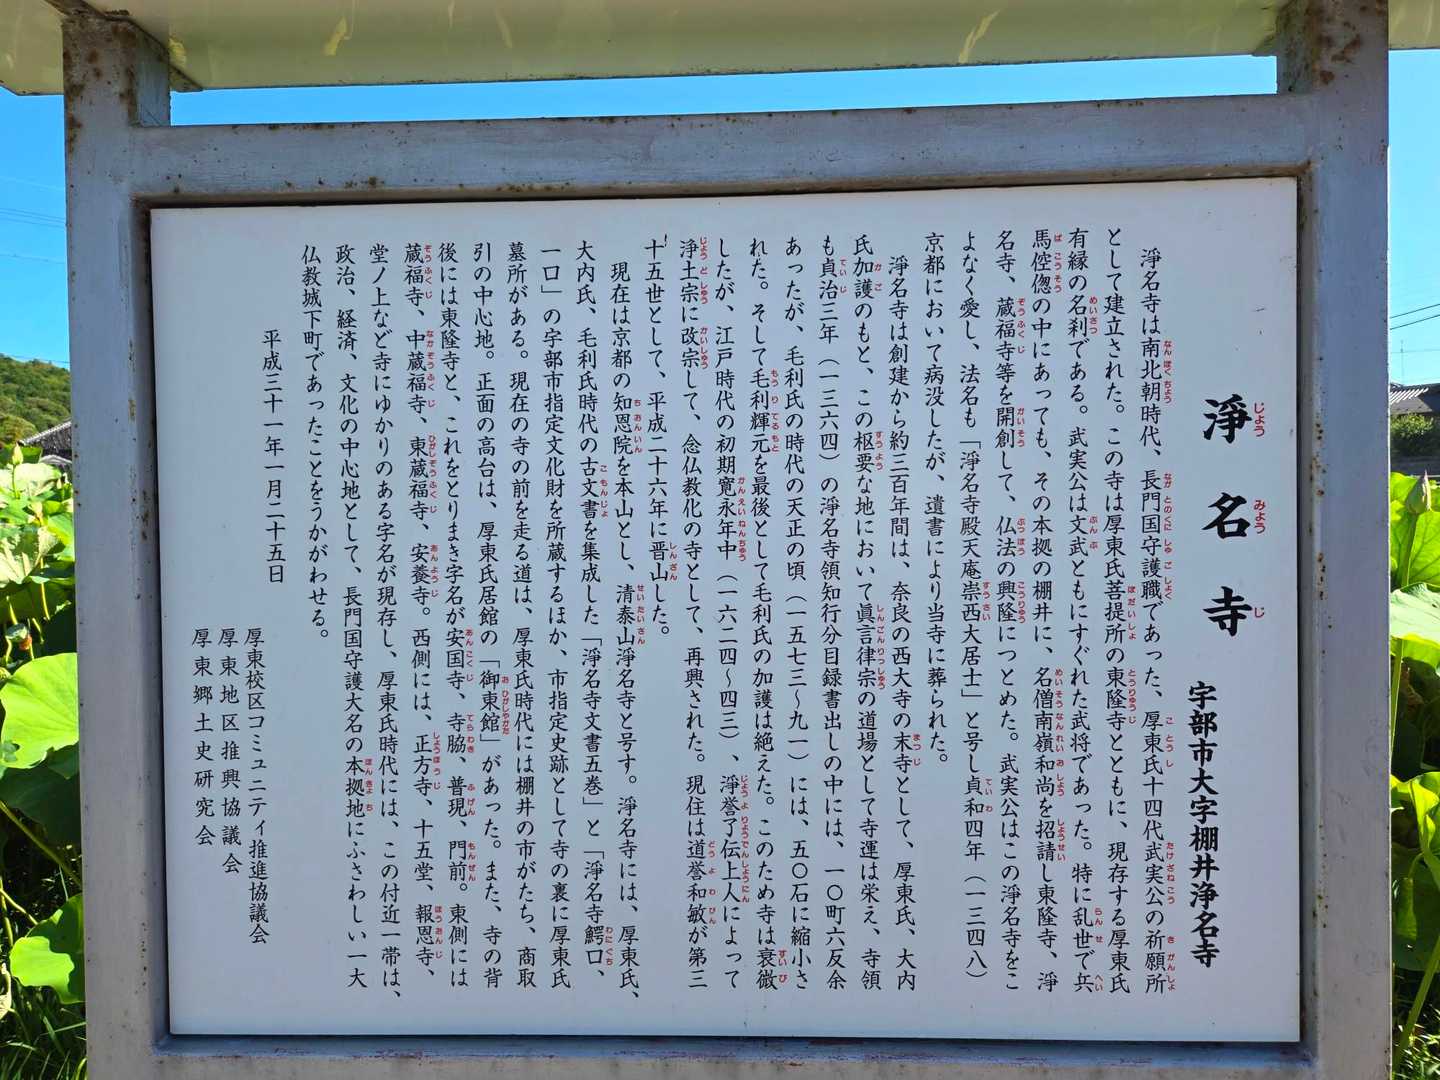 淨名寺
宇部市大字棚井浄名寺
淨名寺は南北朝時代、長門国守護職であった、厚東氏十四代武実公の祈願所
として建立された。この寺は厚東氏菩提所の東隆寺とともに、現存する厚東氏
有縁の名刹である。武実公は文武ともにすぐれた武将であった。特に乱世で兵
馬倥偬の中にあっても、その本拠の棚井に、名僧南嶺和尚を招請し東隆寺、淨
名寺、蔵福寺等を開創して、仏法の興隆につとめた。武実公はこの淨名寺をこ
よなく愛し、法名も「淨名寺殿天庵崇西大居士」と号し貞和四年（一三四八）
京都において病没したが、遺書により当寺に葬られた。
淨名寺は創建から約三百年間は、奈良の西大寺の末寺として、厚東氏、大内
氏加護のもと、この枢要な地において眞言律宗の道場として寺運は栄え、寺領
も貞治三年（一三六四）の淨名寺領知行分目録書出しの中には、一〇町六反余
あったが、毛利氏の時代の天正の頃（一五七三～九一）には、五〇石に縮小さ
れた。そして毛利輝元を最後として毛利氏の加護は絶えた。このため寺は衰微
したが、江戸時代の初期寛永年中（一六二四～四三）、淨誉了伝上人によって
浄土宗に改宗して、念仏教化の寺として、再興された。現住は道誉和敏が第三
十五世として、平成二十六年に晋山した。
現在は京都の知恩院を本山とし、清泰山淨名寺と号す。淨名寺には、厚東氏、
大内氏、毛利氏時代の古文書を集成した「淨名寺文書五巻」と「淨名寺鰐口、
一口」の宇部市指定文化財を所蔵するほか、市指定史跡として寺の裏に厚東氏
墓所がある。現在の寺の前を走る道は、厚東氏時代には棚井の市がたち、商取
引の中心地。正面の高台は、厚東氏居館の「御東館」があった。また、寺の背
後には東隆寺と、これをとりまき字名が安国寺、寺脇、普現、門前。東側には
蔵福寺、中蔵福寺、東蔵福寺、安養寺。西側には、正方寺、十五堂、報恩寺、
堂ノ上など寺にゆかりのある字名が現存し、厚東氏時代には、この付近一帯は、
政治、経済、文化の中心地として、長門国守護大名の本拠地にふさわしい一大
仏教城下町であったことをうかがわせる。
平成三十一年一月二十五日
厚東校区コミュニティ推進協議会
厚東地区推興協議会
厚東郷土史研究会